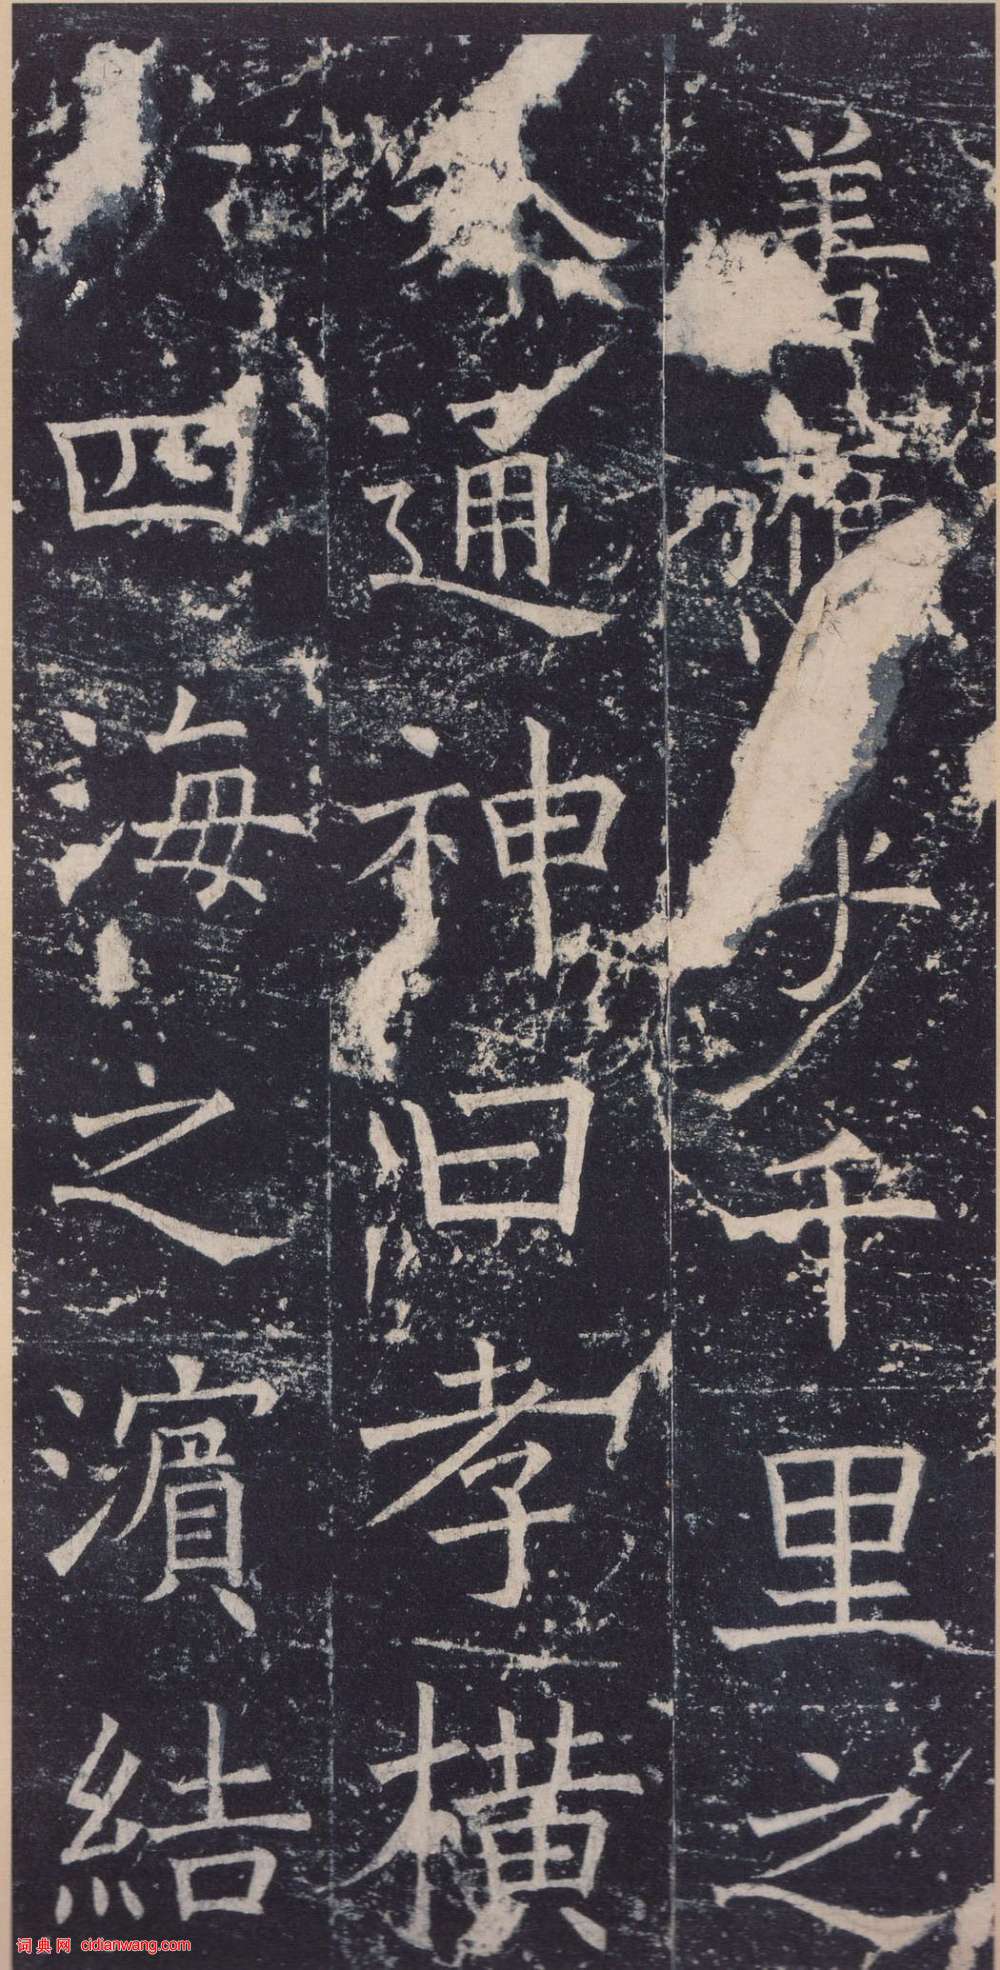 善乎千里之
通神曰孝橫
四海之濱結
词典网 cidianwang.com